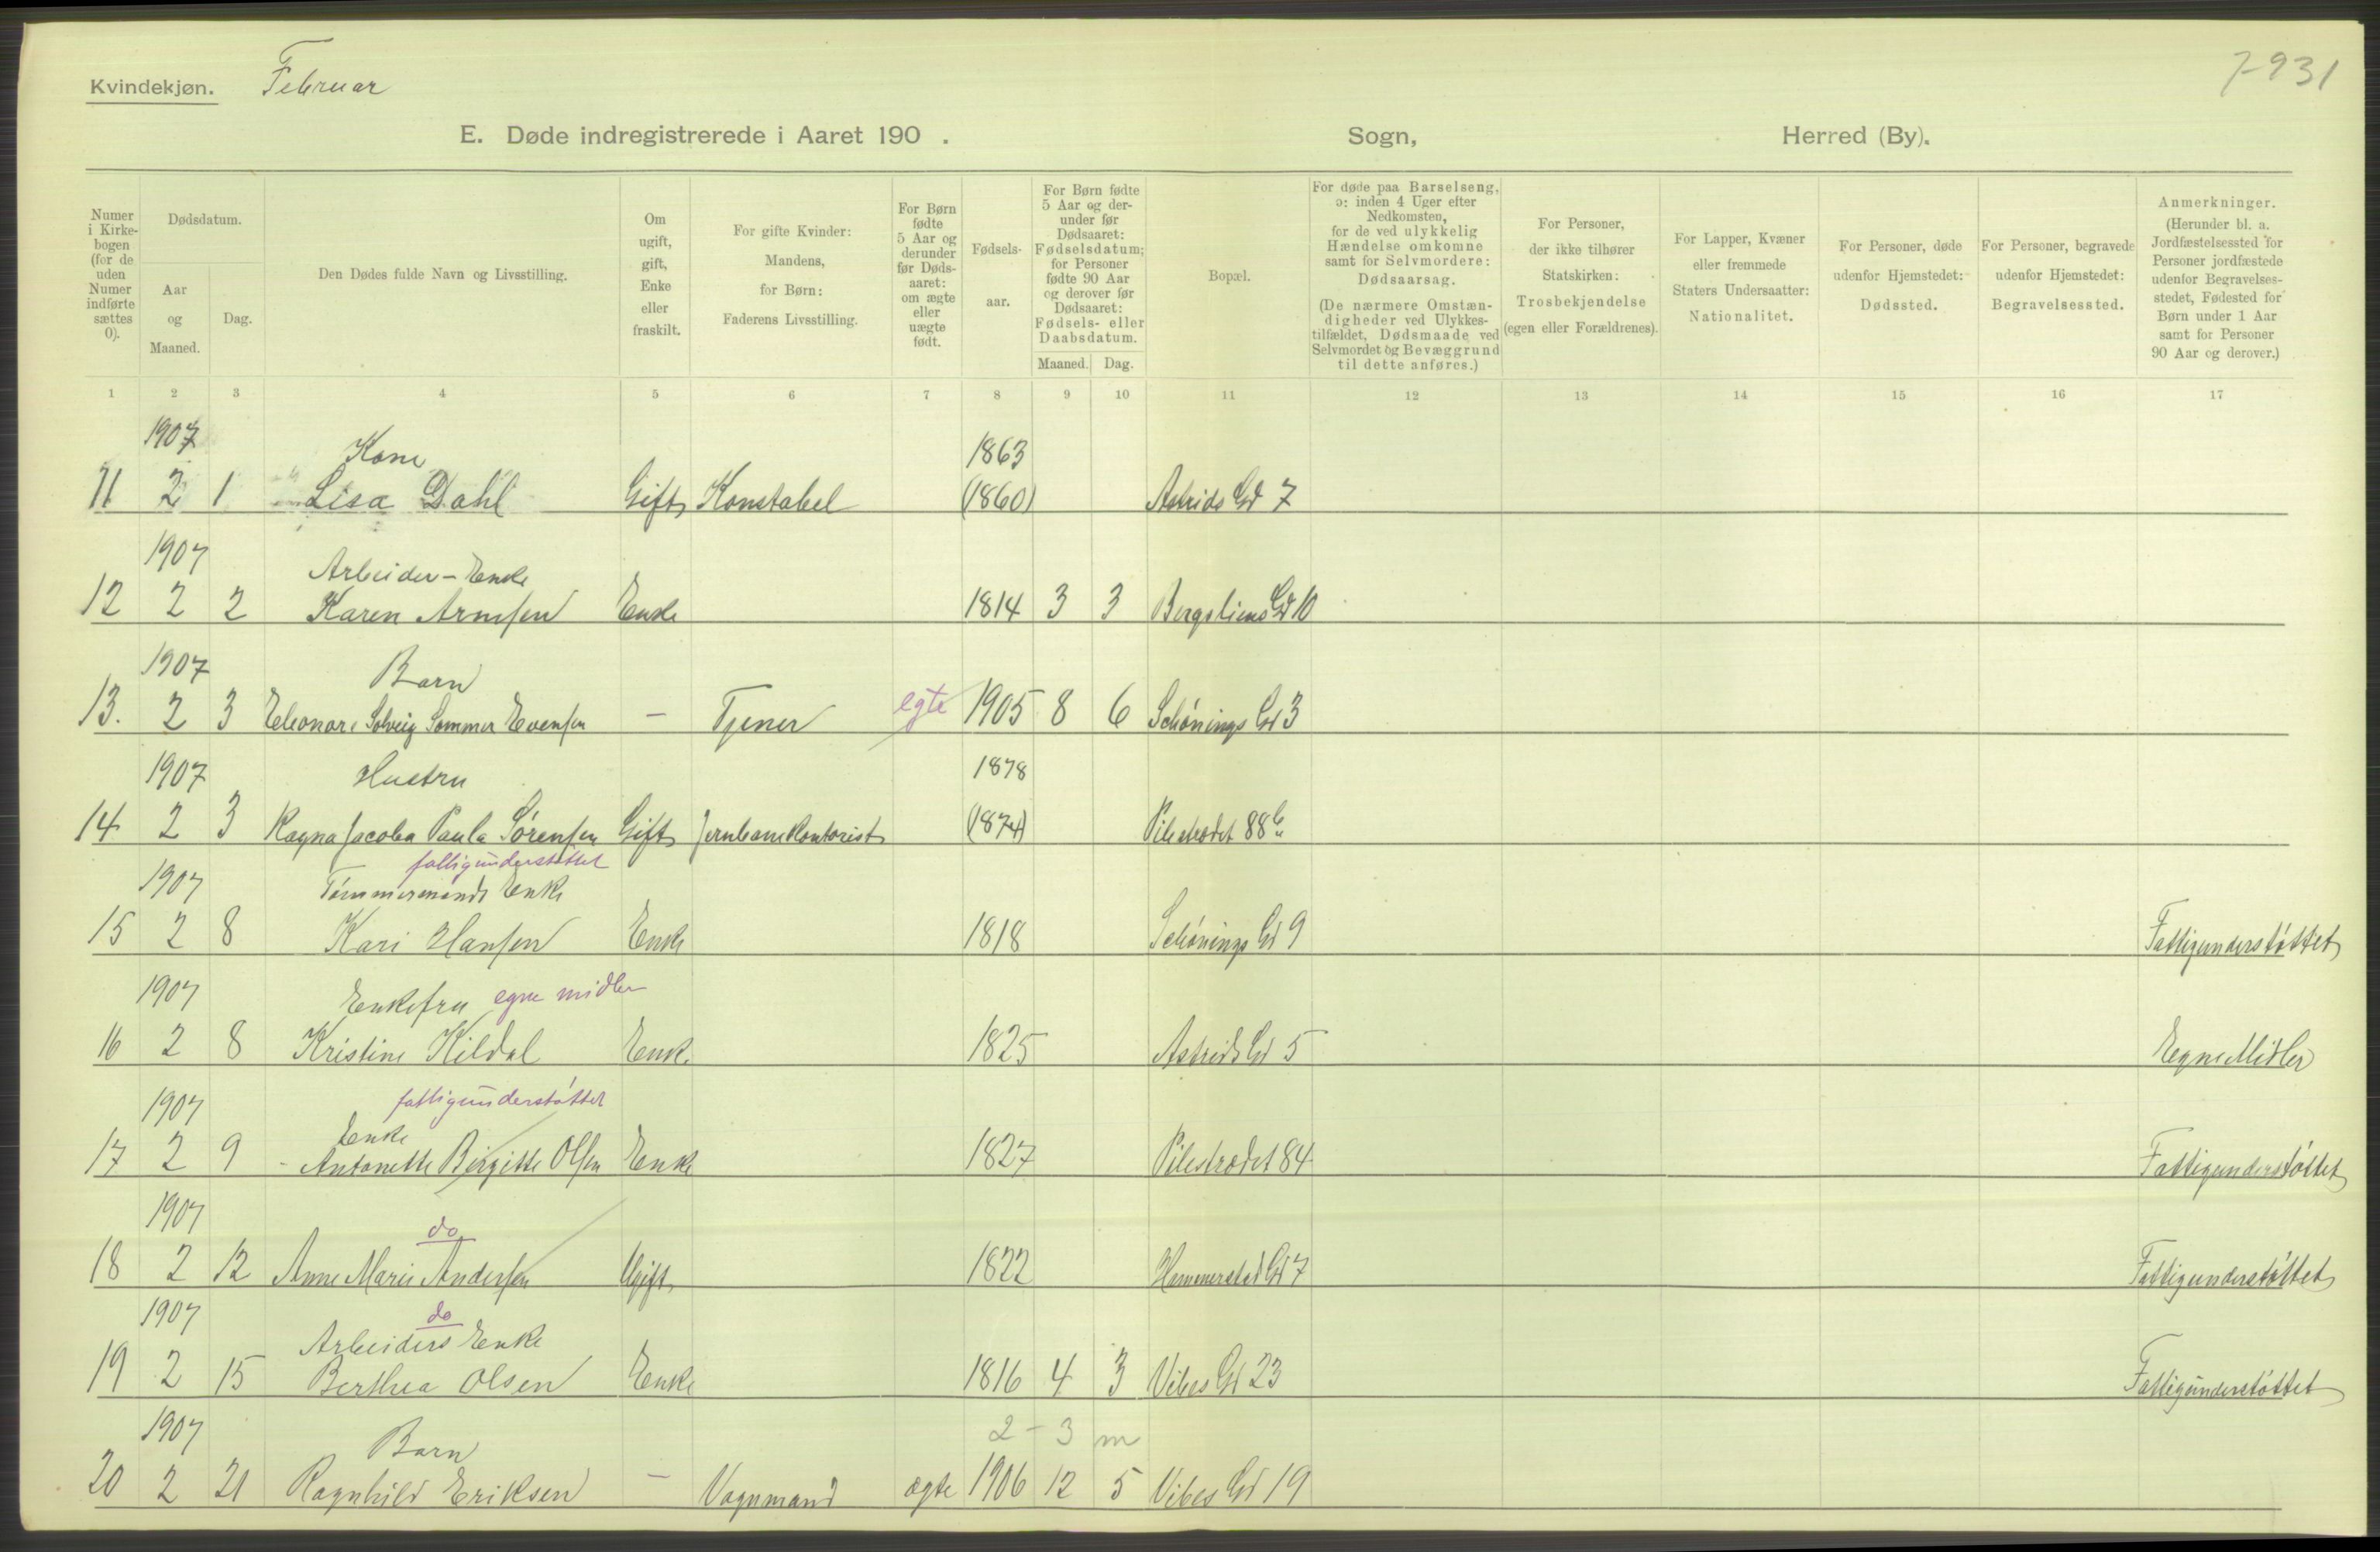 Kvindekjøn. Februar
7-931
E. Døde indregistrerede i Aaret 190 . Sogn, Herred (By).
Numer i Kirkebogen (for de uden Numer indførte sættes 0).
Dødsdatum.
Aar og Maaned.
Dag.
Den Dødes fulde Navn og Livsstilling.
Om ugift, gift, Enke eller fraskilt.
For gifte Kvinder: Mandens, for Børn: Faderens Livsstilling.
For Børn fødte 5 Aar og derunder før Dødsaaret: om ægte eller uægte født.
Fødselsaar.
For Børn fødte 5 Aar og derunder før Dødsaaret: Fødselsdatum; for Personer fødte 90 Aar og derover før Dødsaaret: Fødsels- eller Daabsdatum.
Maaned. Dag.
Bopæl.
For døde paa Barselseng, ɔ: inden 4 Uger efter Nedkomsten, for de ved ulykkelig Hændelse omkomne samt for Selvmordere: Dødsaarsag.
(De nærmere Omstændigheder ved Ulykkestilfældet, Dødsmaade ved Selvmordet og Bevæggrund til dette anføres.)
For Personer, der ikke tilhører Statskirken: Trosbekjendelse (egen eller Forældrenes).
For Lapper, Kvæner eller fremmede Staters Undersaatter: Nationalitet.
For Personer, døde udenfor Hjemstedet: Dødssted.
For Personer, begravede udenfor Hjemstedet: Begravelsessted.
Anmerkninger. (Herunder bl. a. Jordfæstelsessted for Personer jordfæstede udenfor Begravelsesstedet, Fødested for Børn under 1 Aar samt for Personer 90 Aar og derover.)
1 2 3 4 5 6 7 8 9 10 11 12 13 14 15 16 17
1907 Kone 1863
11 2 1 Lisa Dahl Gift Konstabel (1860) Astrids Gd 7
1907 Arbeider-Enke
12 2 2 Karen Arnesen Enke 1814 3 3 Bergsliens Gd 10
1907 Barn
13. 2 3 Eleonore Solveig Sommer Evensen — Tjener egte 1905 8 6 Schönings Gd 3
1907 Hustru 1878
14 2 3 Ragna Jacoba Paula Sørensen Gift Jernbanekontorist (1874) Pilestrædet 88b
fattigunderstøttet
1907 Tömmermands Enke
15 2 8 Kari Hansen Enke 1818 Schönings Gd 9 Fattigunderstøttet
1907 Enkefru egne midler
16 2 8 Kristine Kildal Enke 1825 Astrids Gd 5 Egne Midler
1907 fattigunderstøttet
Enke
17 2 9 Antonette Birgitte Olsen Enke 1827 Pilestrædet 84 Fattigunderstøttet
1907 do
18 2 12 Anne Marie Andersen Ugift 1822 Hammerstad Gd 7 Fattigunderstøttet
1907 do
Arbeiders Enke
19 2 15 Berthea Olsen Enke 1816 4 3 Vibes Gd 23 Fattigunderstøttet
1907 Barn 2 - 3 m
20 2 21 Ragnhild Eriksen — Vognmand ægte 1906 12 5 Vibes Gd 19